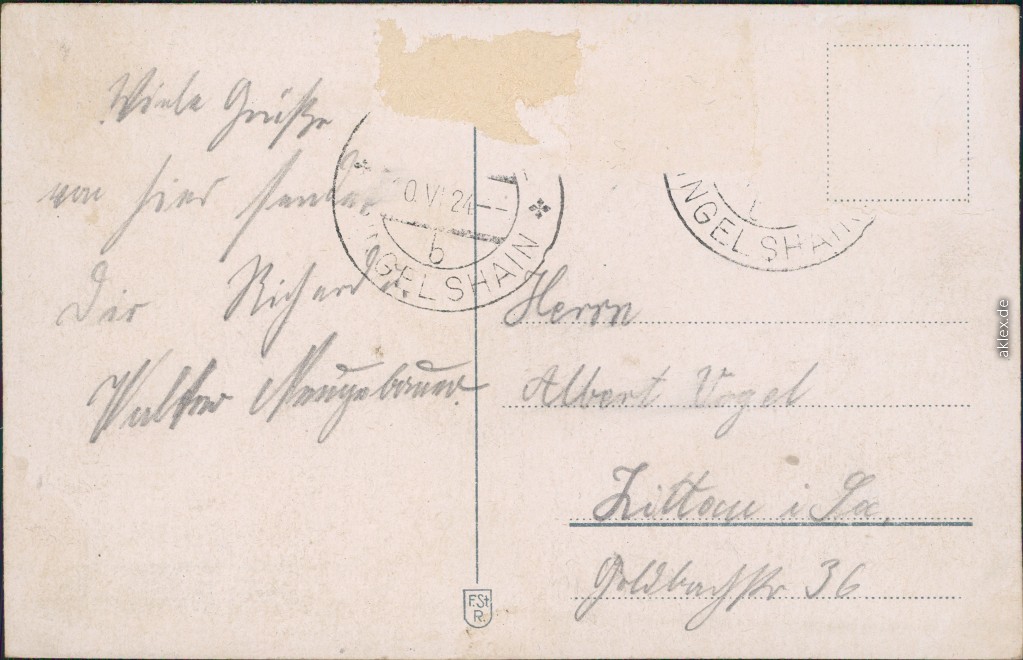 Viele Grüße
von hier senden
Dir Richard u.
Walter Neugebauer.
0.VI.24
b
NGELSHAIN
NGELSHAIN
Herrn
Albert Vogel
Zittau i Sa.
Goldbachstr 36
F.St
R.
aklex.de